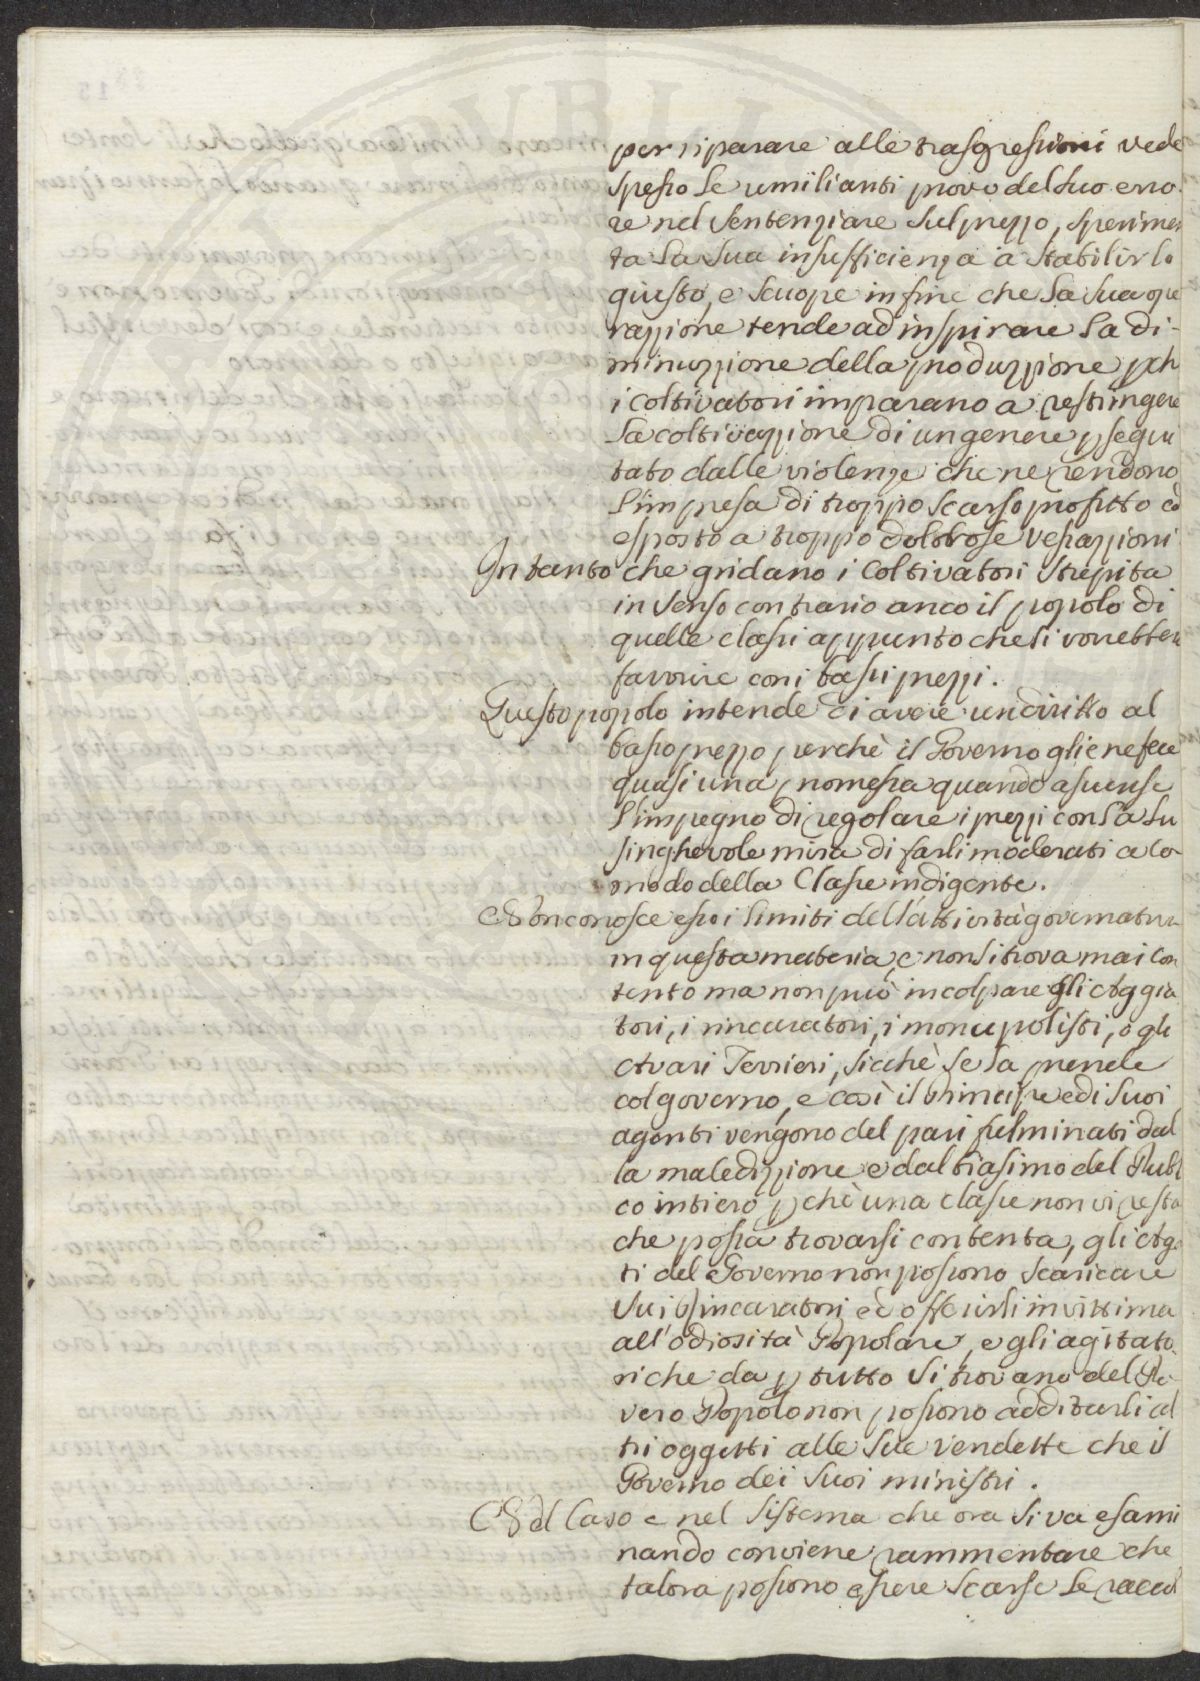 per riparare alle trasgressioni vede
spesso le umilianti prove del suo erro-
re nel sentenziare sul prezzo, sperimen
ta la sua insufficienza a stabilirlo
giusto, e scuopre infine che la sua ope
razzione tende ad inspirare la di-
minuzzione della produzzione pch
i coltivatori imparano a restringere
la coltivazzione di un genere psegui
tato dalle violenze che ne rendono
l'impresa di troppo scarso profitto ed
esposto a troppo dolorose vessazzioni
Intanto che gridano i coltivatori strepita
in senso contrario anco il popolo di
quelle classi appunto che si vorrebbero
favorire con i bassi prezzi.
Questo popolo intende di avere un diritto al
basso prezzo perchè il Governo gliene fece
quasi una promessa quando assunse
l'impegno di regolare i prezzi con la lu
singhevole mira di farli moderati a co-
modo della Classe indigente.
Non conosce esso i limiti dell'attività governativa
in questa materia, e non si trova mai con
tento ma non può incolpare gli Aggia
tori, i rincaratori, i monupolisti, o gli
Avari Terrieri, sicchè se la prende
col governo, e così il Principe ed i suoi
agenti vengono del pari fulminati dal
la maledizzione e dal biasimo del Publi
co intiero pchè una classe non vi resta
che possa trovarsi contenta, gli Ag
ti del Governo non possono scaricare
sui Rincaratori ed offerirli in vittima
all'odiosità Popolare, e gli agitato-
ri che da p tutto si trovano del Po-
vero Popolo non possono additarli al
tri oggetti alle sue vendette che il
Governo dei suoi ministri.
Nel Caso e nel sistema che ora si va esami
nando conviene rammentare che
talora possono essere scarse le raccol